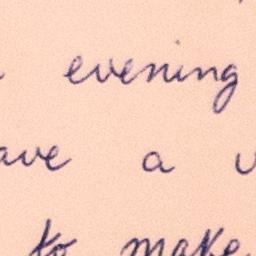 evening
ave a
to make